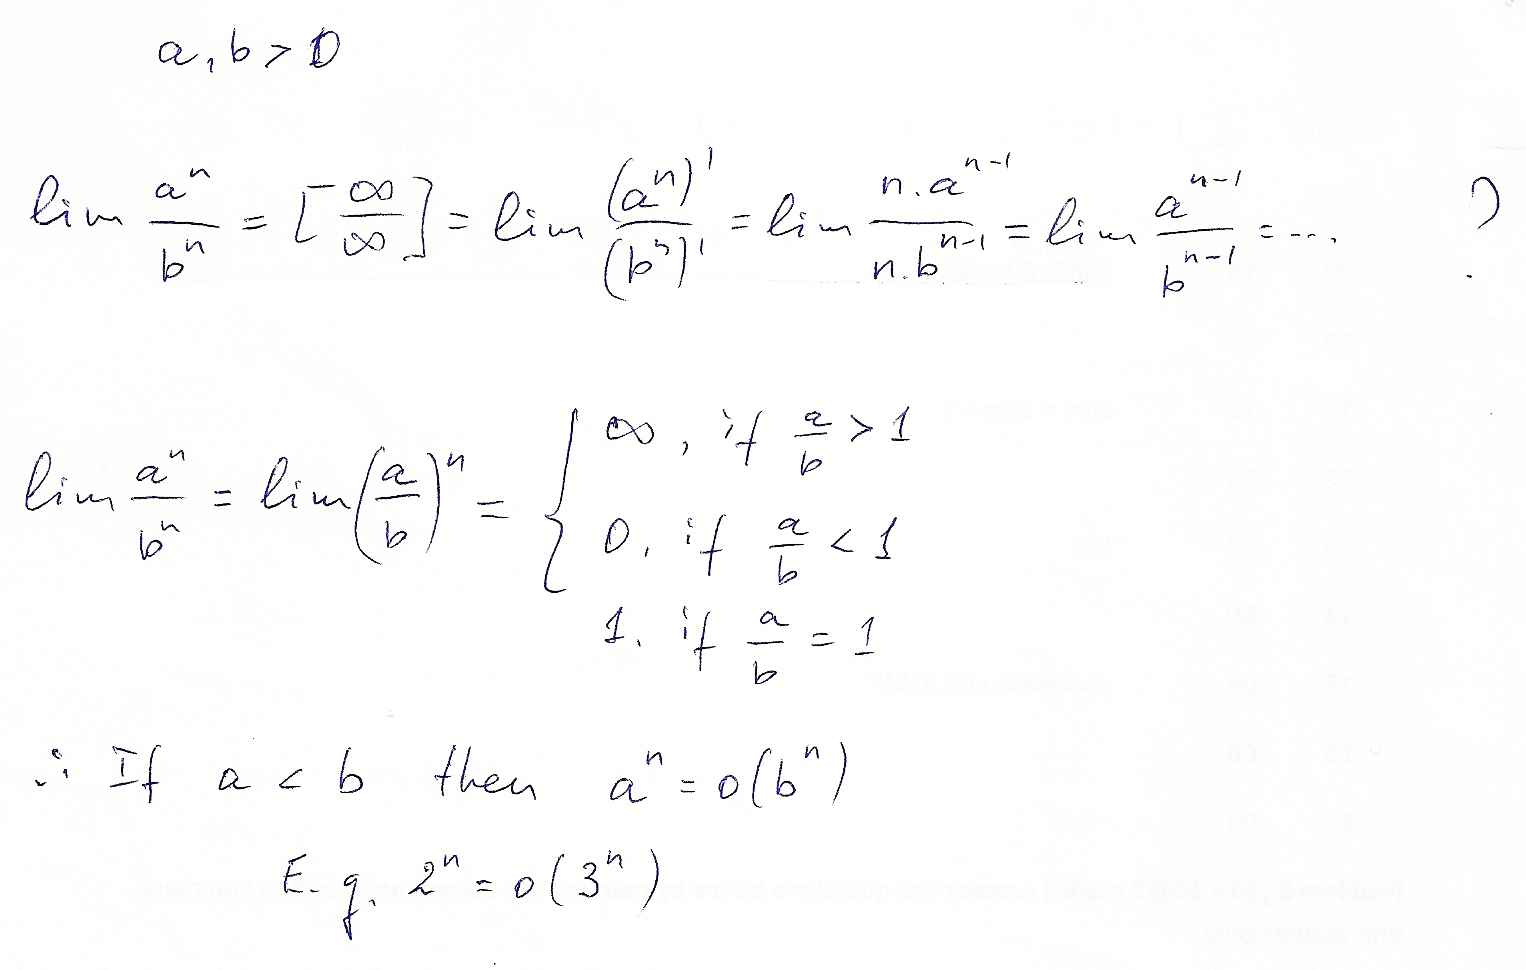 a, b > 0
lim a^n / b^n = [∞/∞] = lim (a^n)' / (b^n)' = lim n.a^(n-1) / n.b^(n-1) = lim a^(n-1) / b^(n-1) = ... ?
lim a^n / b^n = lim (a/b)^n = { ∞, if a/b > 1
0, if a/b < 1
1, if a/b = 1
∴ If a < b then a^n = o(b^n)
E.g. 2^n = o(3^n)